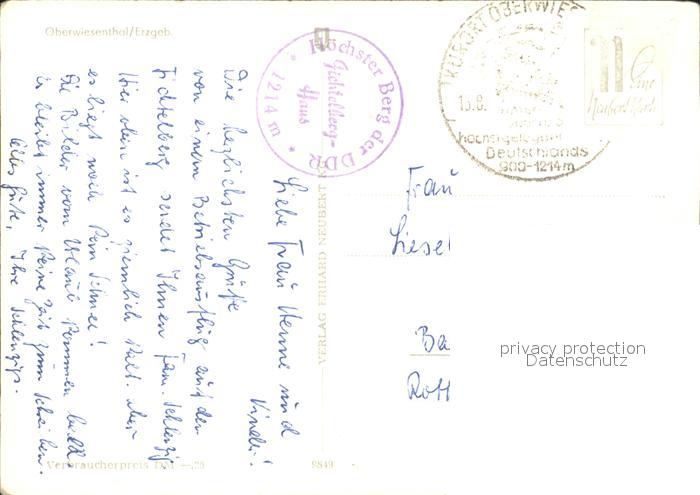 Oberwiesenthal/Erzgeb.
Höchster Berg der DDR
Fichtelberg-
Haus
* 1214 m *
KURORT OBERWIES
13.8.
höchstgelegener
Deutschlands
900-1214m
Liebe Frau Henne und
Kinder!
Die herzlichsten Grüße
von einem Betriebsausflug auf den
Fichtelberg sendet Ihnen Fam.
Hier oben ist es ziemlich kalt. Aber
es liegt noch kein Schnee!
Die Bilder vom Urlaub kommen bald
es bleibt immer keine Zeit zum Schreiben.
Alles Gute, Ihre
Frau
Liesel
Ba
Rott
VERLAG ERHARD NEUBERT K
Verbraucherpreis DM —,25
9849
privacy protection
Datenschutz